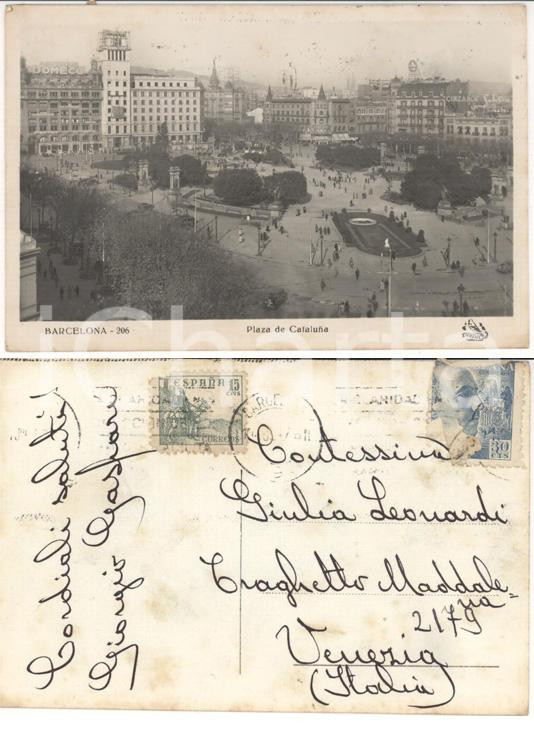 DOMECQ
CINZANO
BARCELONA - 206
Plaza de Cataluña
Charta
ESPAÑA 15 CTS
CORREOS
30 CTS
Cordiali saluti
Giorgio Gaspare
Contessina
Giulia Leonardi
Traghetto Maddale=
na
2179
Venezia
(Italia)